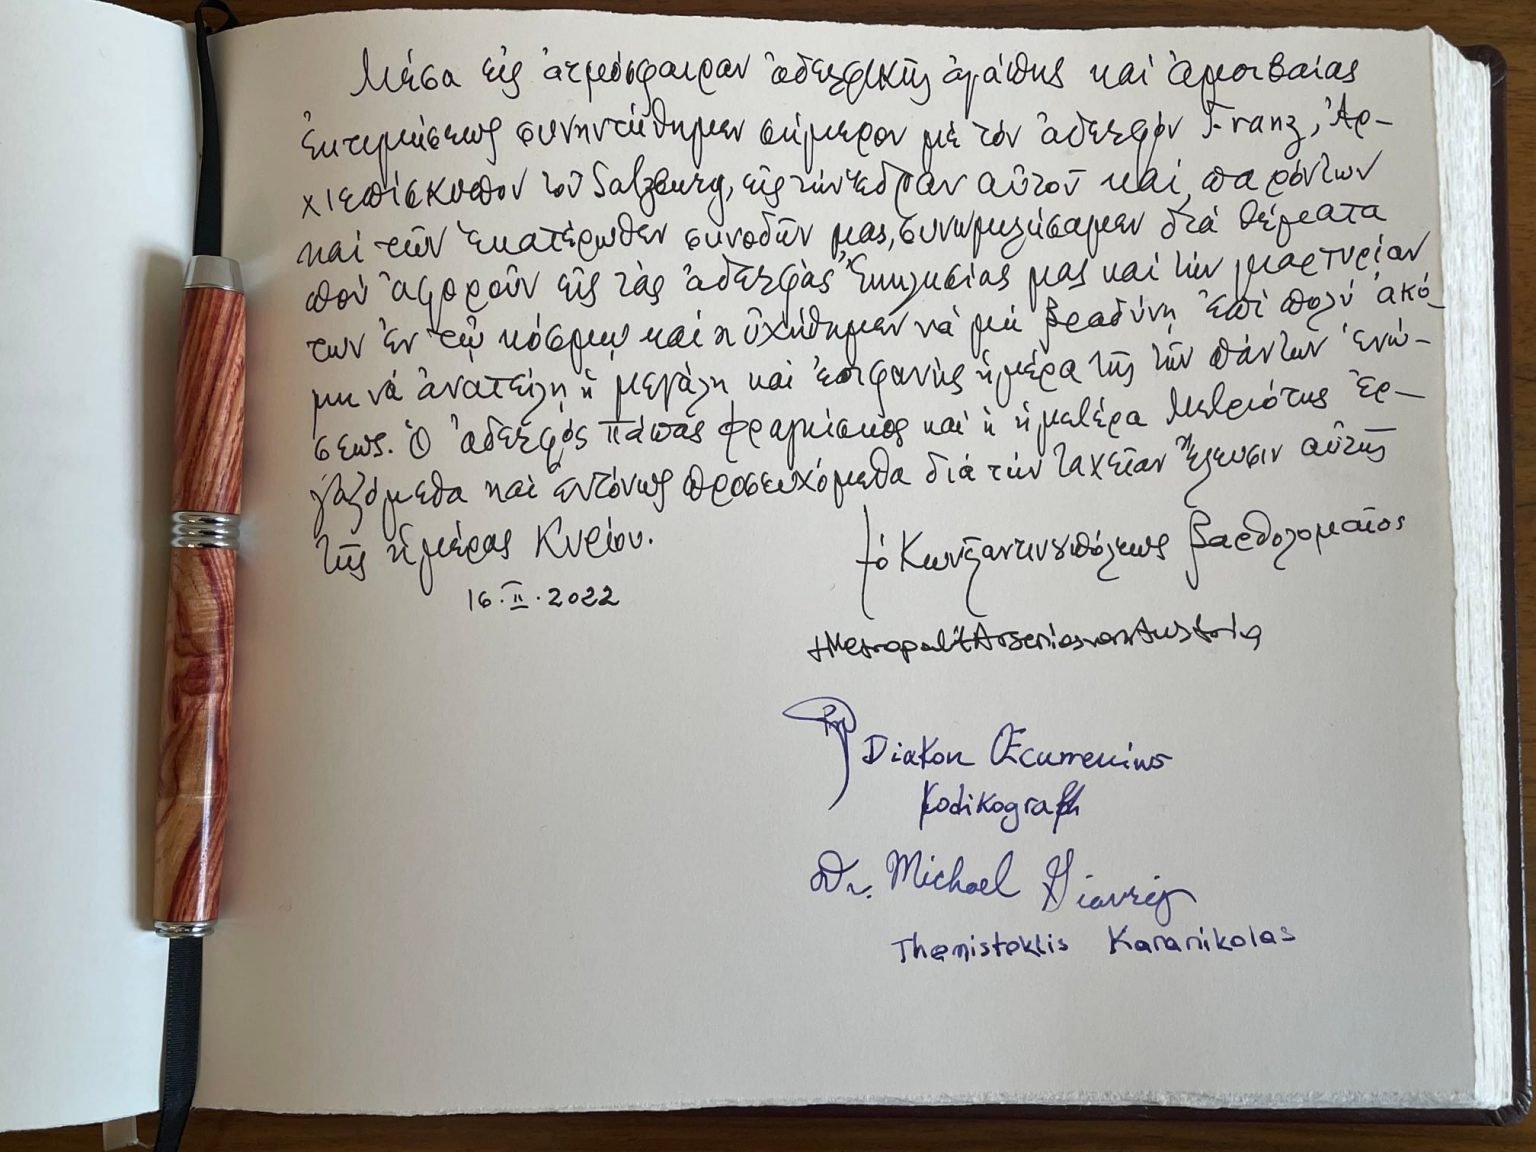 Μέσα εἰς ἀτμόσφαιραν ἀδελφικῆς ἀγάπης καί ἀμοιβαίας
ἐκτιμήσεως συνηντήθημεν σήμερον μέ τόν ἀδελφόν Franz, Ἀρ-
χιεπίσκοπον τοῦ Salzburg, εἰς τήν ἕδραν αὐτοῦ καί, παρόντων
καί τῶν ἑκατέρωθεν συνοδῶν μας, συνωμιλήσαμεν διά θέματα
πού ἀφοροῦν εἰς τάς ἀδελφάς Ἐκκλησίας μας καί τήν μαρτυρίαν
των ἐν τῷ κόσμῳ καί ηὐχήθημεν νά μή βραδύνῃ ἐπί πολύ ἀκό-
μη νά ἀνατείλῃ ἡ μεγάλη καί ἐπιφανής ἡμέρα τῆς τῶν πάντων ἑνώ-
σεως. Ὁ ἀδελφός πάπας Φραγκίσκος καί ἡ ἡμετέρα Μετριότης ἐρ-
γαζόμεθα καί ἐντόνως προσευχόμεθα διά τήν ταχεῖαν ἔλευσιν αὐτῆς
τῆς ἡμέρας Κυρίου.
16.II.2022
†ὁ Κωνσταντινουπόλεως Βαρθολομαῖος
+Metropolit Arsenios von Austria
Diakon Œcumenius
Kodikograph
Dr. Michael
Themistoklis Karanikolas